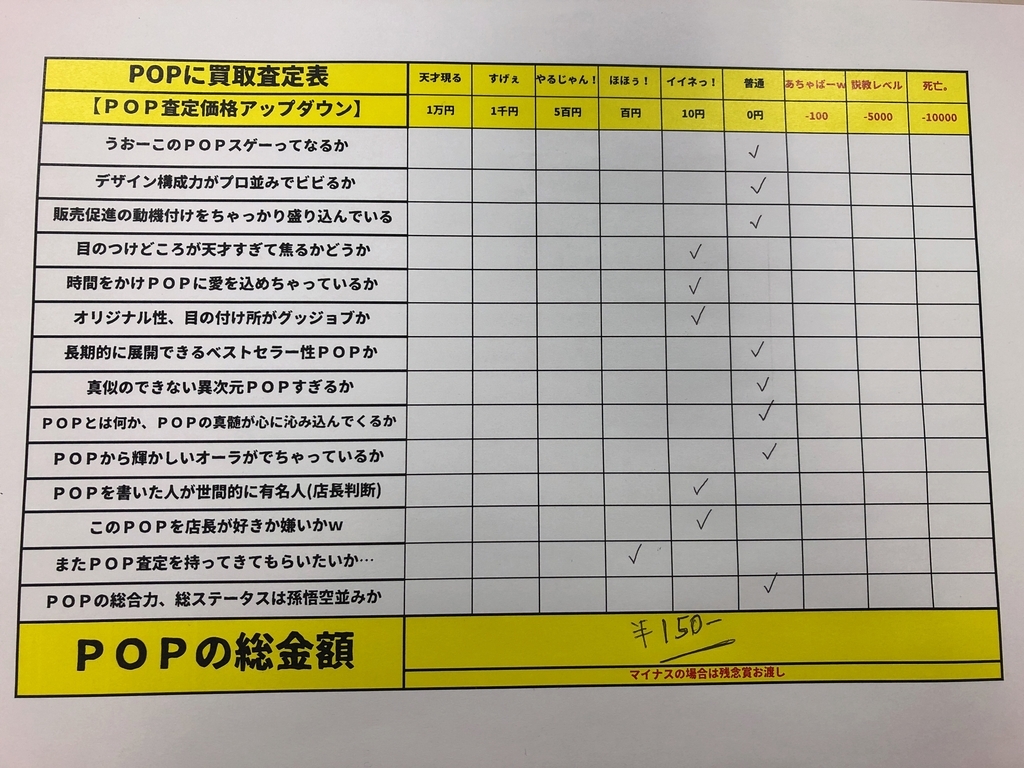 POPに買取査定表 天才現る すげぇ やるじゃん! ほほぅ! イイネっ! 普通 あちゃぱーw 説教レベル 死亡。
【POP査定価格アップダウン】 1万円 1千円 5百円 百円 10円 0円 -100 -5000 -10000
うおーこのPOPスゲーってなるか ✓
デザイン構成力がプロ並みでビビるか ✓
販売促進の動機付けをちゃっかり盛り込んでいる ✓
目のつけどころが天才すぎて焦るかどうか ✓
時間をかけPOPに愛を込めちゃっているか ✓
オリジナル性、目の付け所がグッジョブか ✓
長期的に展開できるベストセラー性POPか ✓
真似のできない異次元POPすぎるか ✓
POPとは何か、POPの真髄が心に沁み込んでくるか ✓
POPから輝かしいオーラがでちゃっているか ✓
POPを書いた人が世間的に有名人(店長判断) ✓
このPOPを店長が好きか嫌いかw ✓
またPOP査定を持ってきてもらいたいか… ✓
POPの総合力、総ステータスは孫悟空並みか ✓
POPの総金額 ¥150-
マイナスの場合は残念賞お渡し